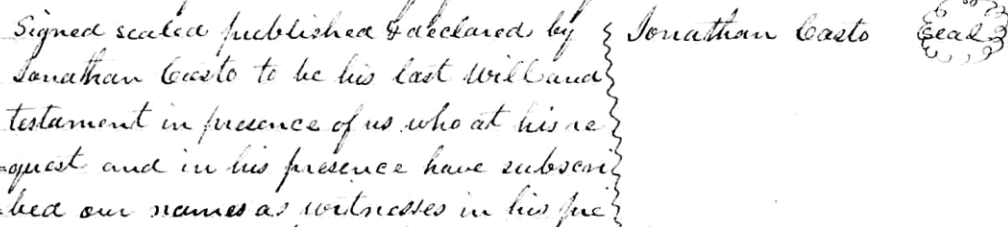 Signed sealed published & declared by Jonathan Casto Seal
Jonathan Casto to be his last Will and
testament in presence of us who at his re
quest and in his presence have subscri
bed our names as witnesses in his pre